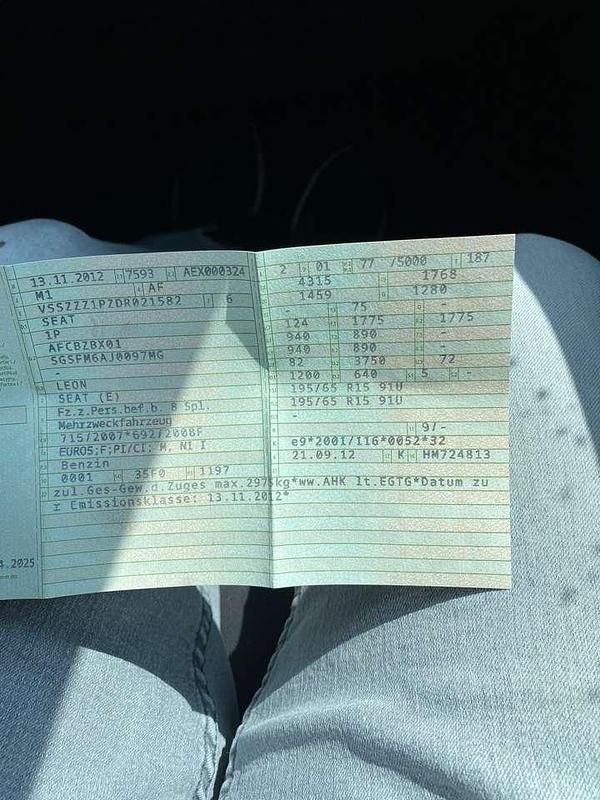 13.11.2012 7593 AEX000324
M1 AF
VSSZZZ1PZDR021582 6
SEAT
1P
AFCBZBX01
SGSFM6AJ0097MG
-
LEON
SEAT (E)
Fz.z.Pers.bef.b. 8 Spl.
Mehrzweckfahrzeug
715/2007*692/2008F
EURO5;F;PI/CI; M, NI I
Benzin
0001 35F0 1197
zul.Ges-Gew.d.Zuges max.2975kg*ww.AHK lt.EGTG*Datum zu
r Emissionsklasse: 13.11.2012*
2 01 77 /5000 187
4315 1768
1459 1280
- 75 -
124 1775 1775
940 890 -
940 890 -
82 3750 72
1200 640 5 -
195/65 R15 91U
195/65 R15 91U
-
9/-
e9*2001/116*0052*32
21.09.12 K HM724813
4.2025